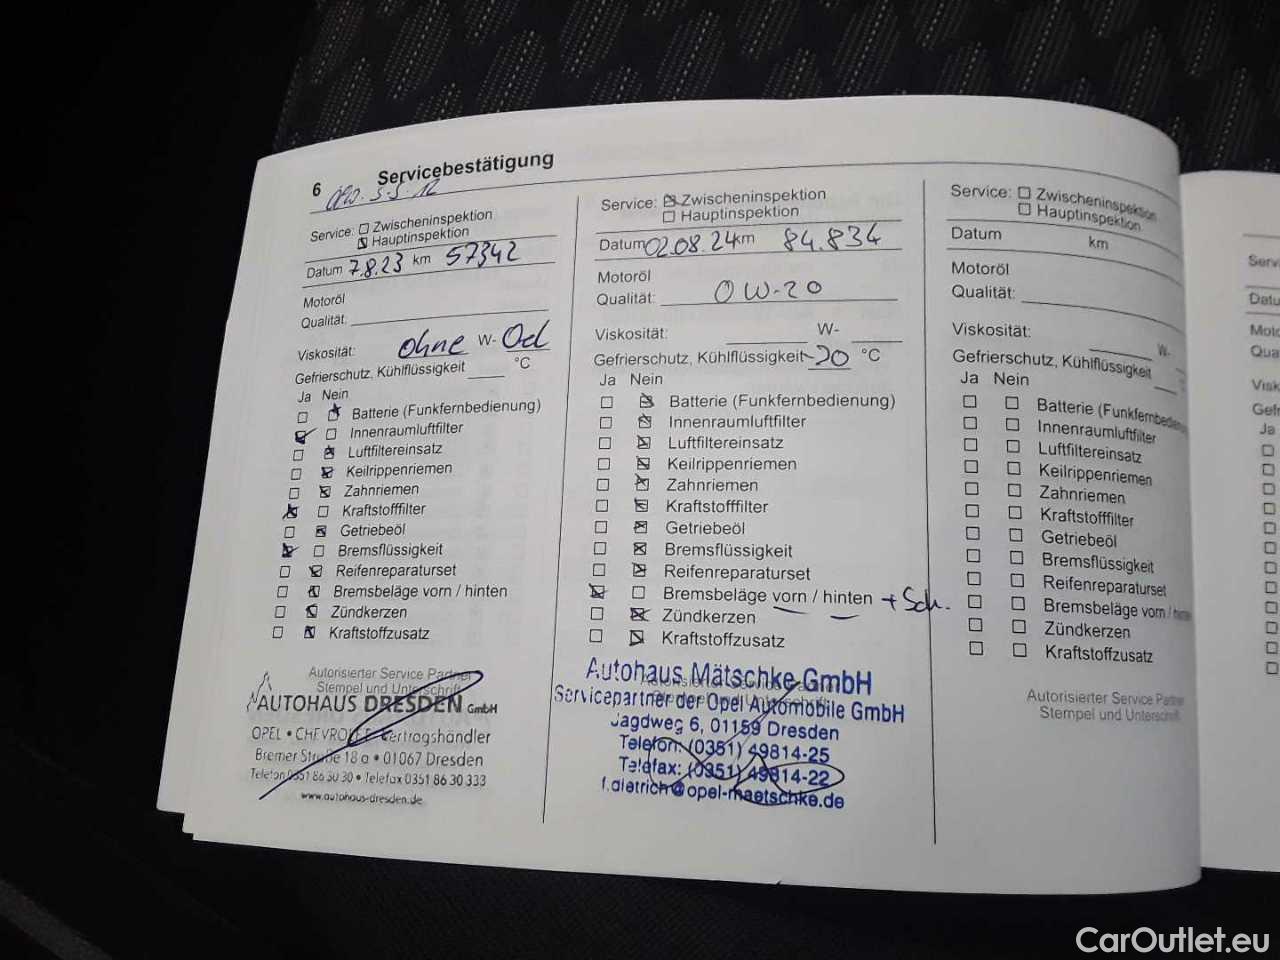 6 Servicebestätigung
5.5.12
Service: Zwischeninspektion
Hauptinspektion
Datum 7.8.23 km 57342
Motoröl
Qualität:
Viskosität: ohne W- Oel
Gefrierschutz, Kühlflüssigkeit °C
Ja Nein
Batterie (Funkfernbedienung)
Innenraumluftfilter
Luftfiltereinsatz
Keilrippenriemen
Zahnriemen
Kraftstofffilter
Getriebeöl
Bremsflüssigkeit
Reifenreparaturset
Bremsbeläge vorn / hinten
Zündkerzen
Kraftstoffzusatz
Autorisierter Service Partner
Stempel und Unterschrift
AUTOHAUS DRESDEN GmbH
OPEL • CHEVROLET Vertragshändler
Bremer Straße 18a • 01067 Dresden
Telefon 0351 86 30 30 • Telefax 0351 86 30 333
www.autohaus-dresden.de
Service: Zwischeninspektion
Hauptinspektion
Datum 02.08.24 km 84.834
Motoröl
Qualität: 0W-20
Viskosität: W-
Gefrierschutz, Kühlflüssigkeit -30 °C
Ja Nein
Batterie (Funkfernbedienung)
Innenraumluftfilter
Luftfiltereinsatz
Keilrippenriemen
Zahnriemen
Kraftstofffilter
Getriebeöl
Bremsflüssigkeit
Reifenreparaturset
Bremsbeläge vorn / hinten + Sch.
Zündkerzen
Kraftstoffzusatz
Autorisierter Service Partner
Stempel und Unterschrift
Autohaus Mätschke GmbH
Servicepartner der Opel Automobile GmbH
Jagdweg 6, 01159 Dresden
Telefon: (0351) 49814-25
Telefax: (0351) 49814-22
f.dietrich@opel-maetschke.de
Service: Zwischeninspektion
Hauptinspektion
Datum km
Motoröl
Qualität:
Viskosität: W-
Gefrierschutz, Kühlflüssigkeit
Ja Nein
Batterie (Funkfernbedienung
Innenraumluftfilter
Luftfiltereinsatz
Keilrippenriemen
Zahnriemen
Kraftstofffilter
Getriebeöl
Bremsflüssigkeit
Reifenreparaturset
Bremsbeläge vorn / hinten
Zündkerzen
Kraftstoffzusatz
Autorisierter Service Partner
Stempel und Unterschrift
Servi
Datu
Moto
Qua
Visk
Gefr
Ja
CarOutlet.eu